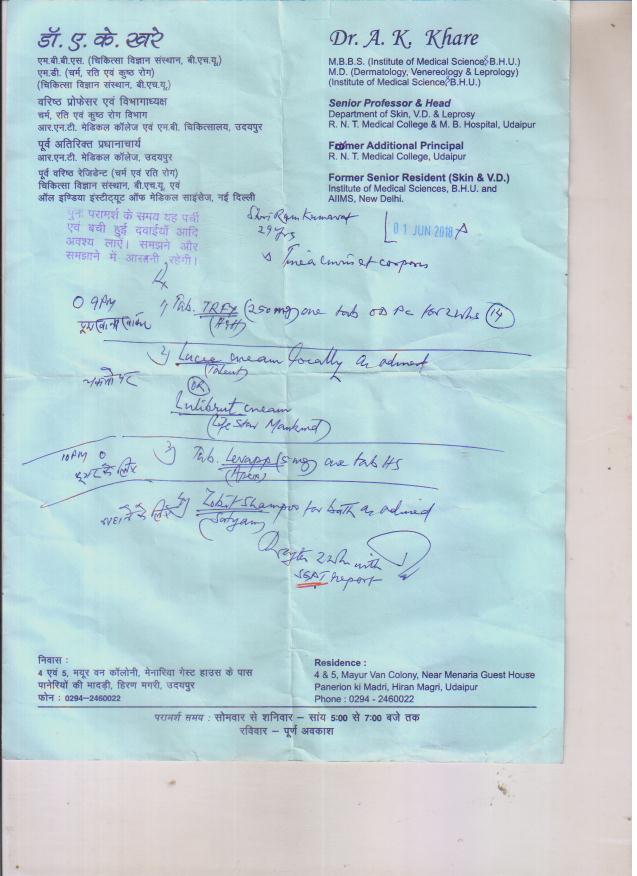 डॉ. ए. के. खरे
एम.बी.बी.एस. (चिकित्सा विज्ञान संस्थान, बी.एच.यू.)
एम.डी. (चर्म, रति एवं कुष्ठ रोग)
(चिकित्सा विज्ञान संस्थान, बी.एच.यू.)
वरिष्ठ प्रोफेसर एवं विभागाध्यक्ष
चर्म, रति एवं कुष्ठ रोग विभाग
आर.एन.टी. मेडिकल कॉलेज एवं एम.बी. चिकित्सालय, उदयपुर
पूर्व अतिरिक्त प्रधानाचार्य
आर.एन.टी. मेडिकल कॉलेज, उदयपुर
पूर्व वरिष्ठ रेजिडेंट (चर्म एवं रति रोग)
चिकित्सा विज्ञान संस्थान, बी.एच.यू. एवं
ऑल इण्डिया इंस्टीट्यूट ऑफ मेडिकल साइंसेज, नई दिल्ली
Dr. A. K. Khare
M.B.B.S. (Institute of Medical Science, B.H.U.)
M.D. (Dermatology, Venereology & Leprology)
(Institute of Medical Science, B.H.U.)
Senior Professor & Head
Department of Skin, V.D. & Leprosy
R. N. T. Medical College & M. B. Hospital, Udaipur
Former Additional Principal
R. N. T. Medical College, Udaipur
Former Senior Resident (Skin & V.D.)
Institute of Medical Sciences, B.H.U. and
AIIMS, New Delhi.
पुनः परामर्श के समय यह पर्ची
एवं बची हुई दवाईयाँ आदि
अवश्य लाएं। समझने और
समझाने में आसानी रहेगी।
Shri Ram Kumavat
29 yrs
01 JUN 2018
Tinea cruris et corporis
9 PM
1) Tab. TRFY (250mg) one tab OD PC for 2 wks (14)
2) cream locally as advised
(Talent)
OR
Lulibrut cream
(Life Star Mankind)
10 PM
3) Tab. (5mg) one tab HS
4) Shampoo for bath as advised
(Satyam)
2 wks with
SGPT report
निवास :
4 एवं 5, मयूर वन कॉलोनी, मेनारिया गेस्ट हाउस के पास
पानेरियों की मादड़ी, हिरण मगरी, उदयपुर
फोन : 0294-2460022
Residence :
4 & 5, Mayur Van Colony, Near Menaria Guest House
Panerion ki Madri, Hiran Magri, Udaipur
Phone : 0294 - 2460022
परामर्श समय : सोमवार से शनिवार – सांय 5:00 से 7:00 बजे तक
रविवार – पूर्ण अवकाश